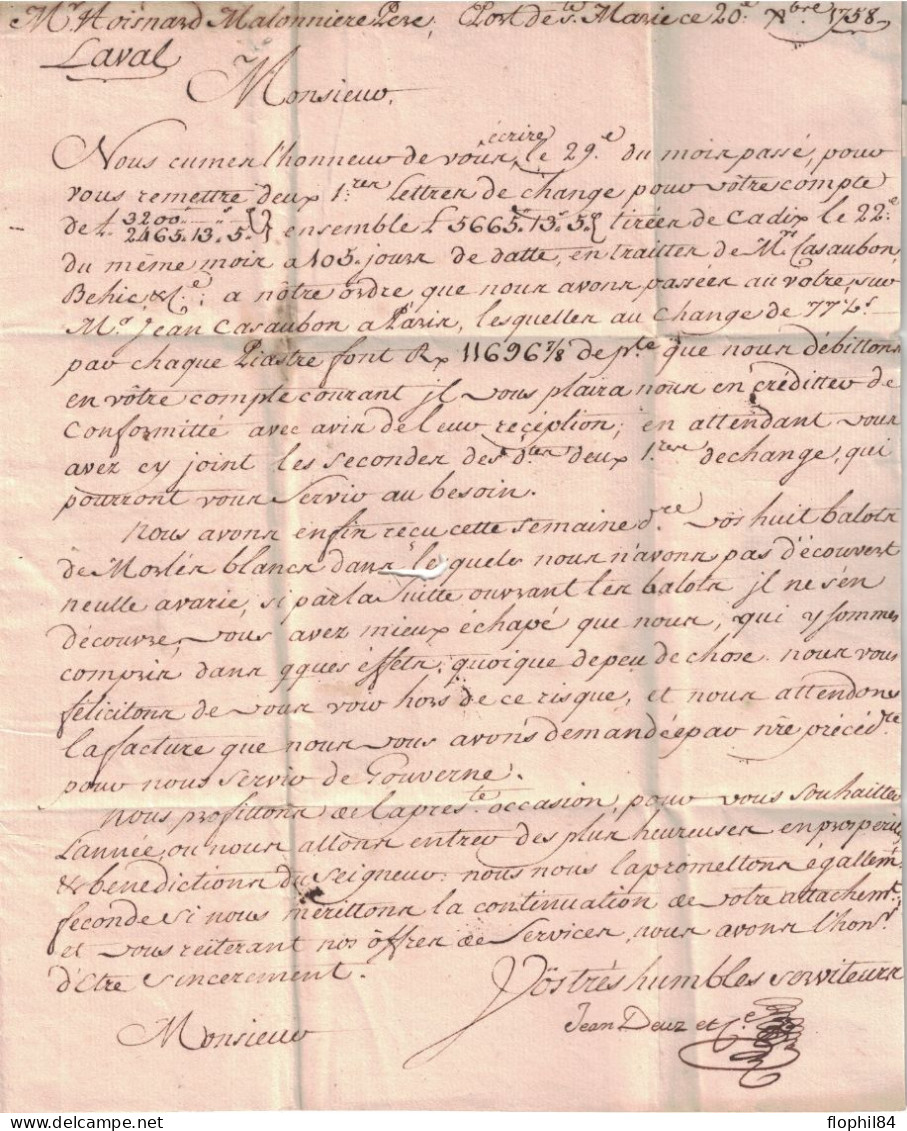 Mr. Hoisnard Malonniere Pere, Port de Ste. Marie ce 20e. Xbre 1758
Laval
Monsieur,
écrire
Nous eumes l'honneur de vous, le 29e. du mois passé, pour
vous remettre deux 1res Lettres de change pour vôtre compte
3200" "
de £. 2465.13.5. } ensemble £ 5665.13.5. { tirées de Cadix le 22e
du même mois a 105. jours de datte, en traittes de Mrs. Casaubon
Behic & Ce. a nôtre ordre que nous avons passées au vôtre, sur
Mr. Jean Casaubon a Paris, lesquelles au change de 77 s.
par chaque Piastre font Rx 11696 7/8 de pte que nous débittons
en vôtre compte courant jl vous plaira nous en créditter de
Conformitté avec avis de leur réception; en attendant vous
avez cy joint les secondes des dtes deux 1res de change, qui
pourront vous servir au besoin.
Nous avons enfin recu cette semaine dre vos huit balots
de Morles blancs dans lesquels nous n'avons pas découvert
neulle avarie, si par la suitte ouvrant les balots jl ne s'en
découvre, vous avez mieux échapé que nous, qui y sommes
compris dans qques éffets, quoique de peu de chose. nous vous
félicitons de vous voir hors de ce risque, et nous attendons
la facture que nous vous avons demandée par nre précédte
pour nous servir de Gouverne.
Nous profittons de la preste. occasion, pour vous souhaitter
L'année, ou nous allons entrer des plus heureuses en prosperité
& benedictions du Seigneur: nous nous la promettons égallemt
feconde si nous mérittons la continuation de votre attachemt.
et vous reiterant nos öffres de Services, nous avons l'honr.
d'Etre Sincerement.
Vos très humbles serviteurs
Monsieur
Jean Deuz et Ce
flophil84